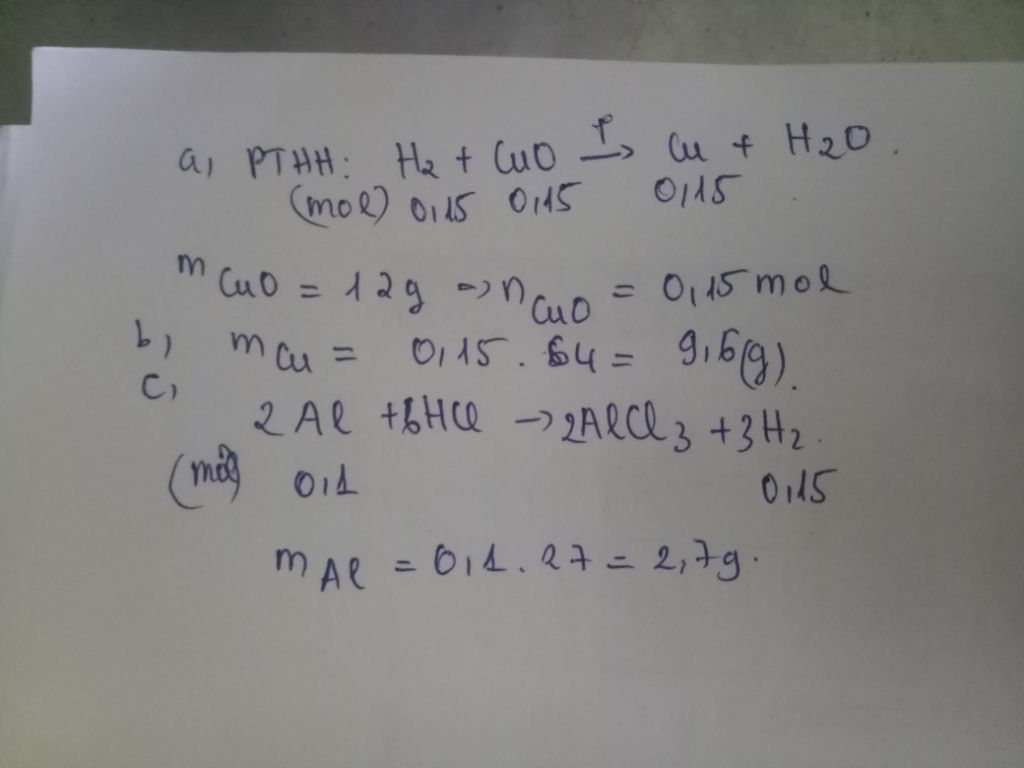 a, PTHH: H2 + CuO t°→ Cu + H2O.
(mol) 0,15 0,15 0,15
mCuO = 12g => nCuO = 0,15 mol
b, mCu = 0,15 . 64 = 9,6(g).
c,
2Al + 6HCl → 2AlCl3 + 3H2.
(mol) 0,1 0,15
mAl = 0,1 . 27 = 2,7g.